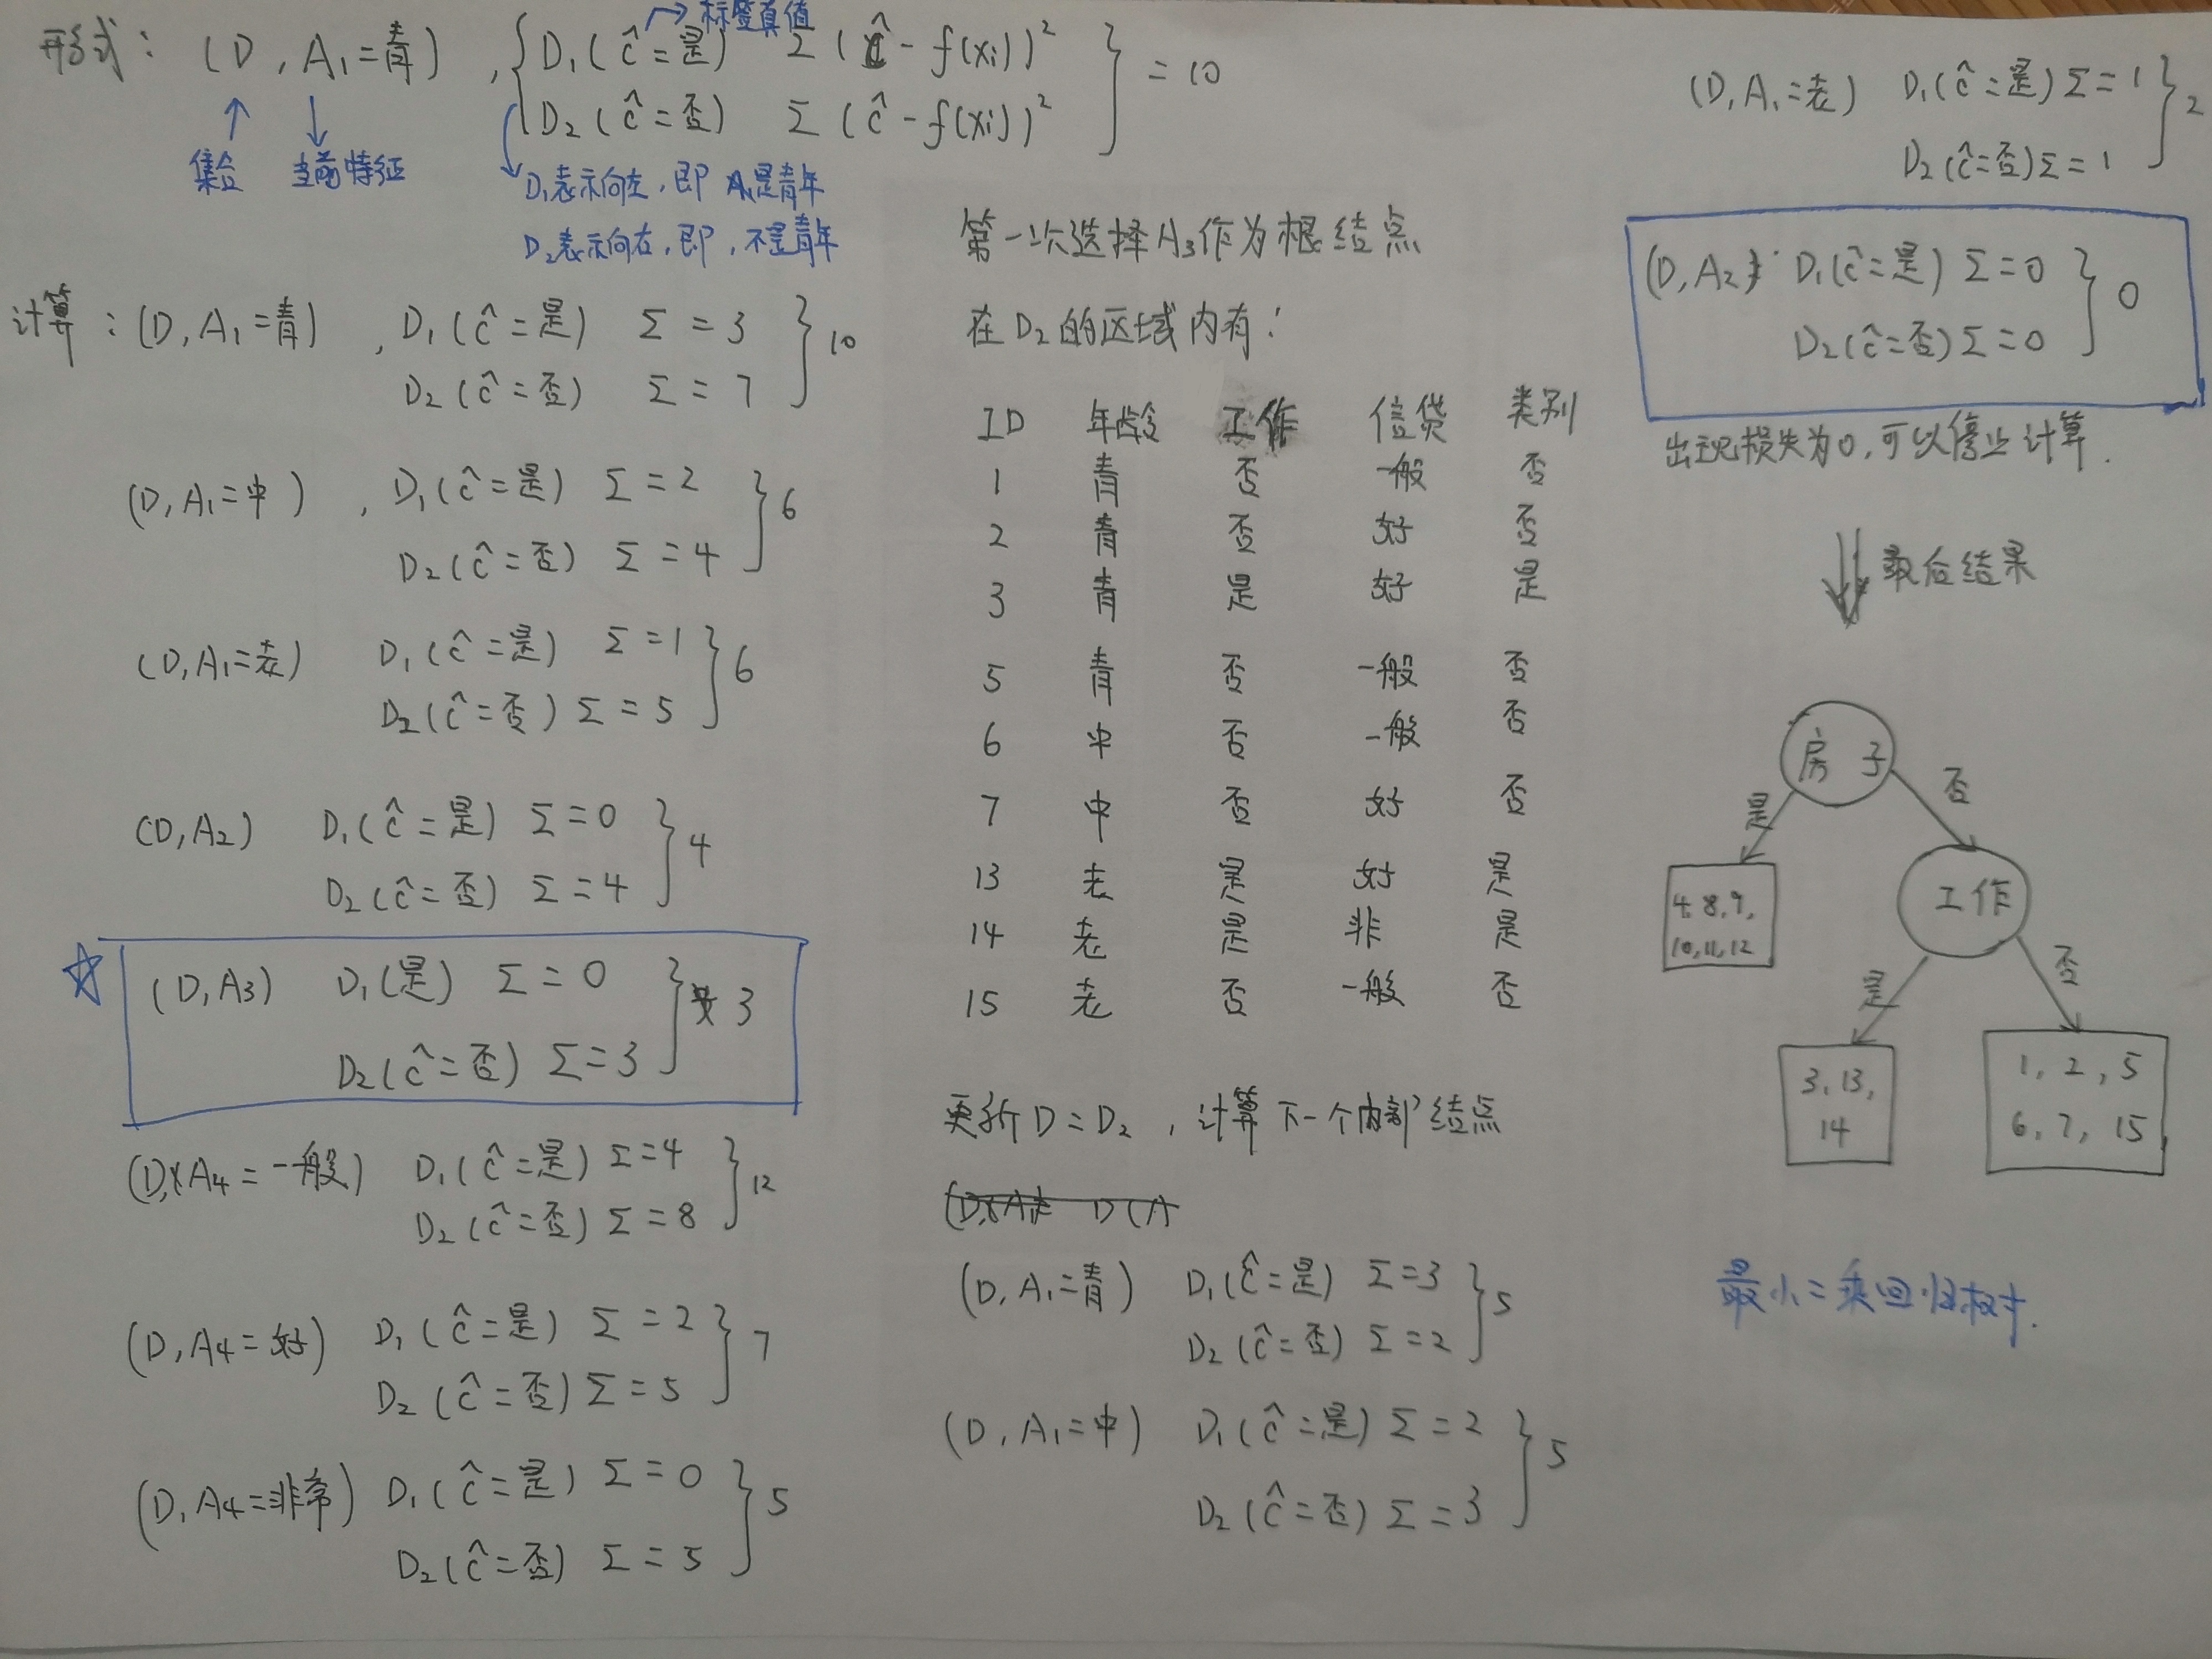 形式：(D, A₁=青) , { D₁(ĉ=是) Σ(ĉ-f(xᵢ))²
D₂(ĉ=否) Σ(ĉ-f(xᵢ))² } = 10
标签真值
集合 当前特征
D₁表示向左，即A₁是青年
D₂表示向右，即，不是青年
计算：(D, A₁=青) , D₁(ĉ=是) Σ=3
D₂(ĉ=否) Σ=7 } 10
(D, A₁=中) , D₁(ĉ=是) Σ=2
D₂(ĉ=否) Σ=4 } 6
(D, A₁=老) D₁(ĉ=是) Σ=1
D₂(ĉ=否) Σ=5 } 6
(D, A₂) D₁(ĉ=是) Σ=0
D₂(ĉ=否) Σ=4 } 4
☆ (D, A₃) D₁(是) Σ=0
D₂(ĉ=否) Σ=3 } 3
(D, A₄=一般) D₁(ĉ=是) Σ=4
D₂(ĉ=否) Σ=8 } 12
(D, A₄=好) D₁(ĉ=是) Σ=2
D₂(ĉ=否) Σ=5 } 7
(D, A₄=非常) D₁(ĉ=是) Σ=0
D₂(ĉ=否) Σ=5 } 5
第一次选择A₃作为根结点
在D₂的区域内有：
ID 年龄 工作 信贷 类别
1 青 否 一般 否
2 青 否 好 否
3 青 是 好 是
5 青 否 一般 否
6 中 否 一般 否
7 中 否 好 否
13 老 是 好 是
14 老 是 非 是
15 老 否 一般 否
更新D=D₂，计算下一个内部结点
(D, A₁=青) D₁(ĉ=是) Σ=3
D₂(ĉ=否) Σ=2 } 5
(D, A₁=中) D₁(ĉ=是) Σ=2
D₂(ĉ=否) Σ=3 } 5
(D, A₁=老) D₁(ĉ=是) Σ=1
D₂(ĉ=否) Σ=1 } 2
(D, A₂) D₁(ĉ=是) Σ=0
D₂(ĉ=否) Σ=0 } 0
出现损失为0，可以停止计算.
最后结果
房子
是 否
4, 8, 9,
10, 11, 12
工作
是 否
3, 13,
14
1, 2, 5
6, 7, 15
最小二乘回归树.